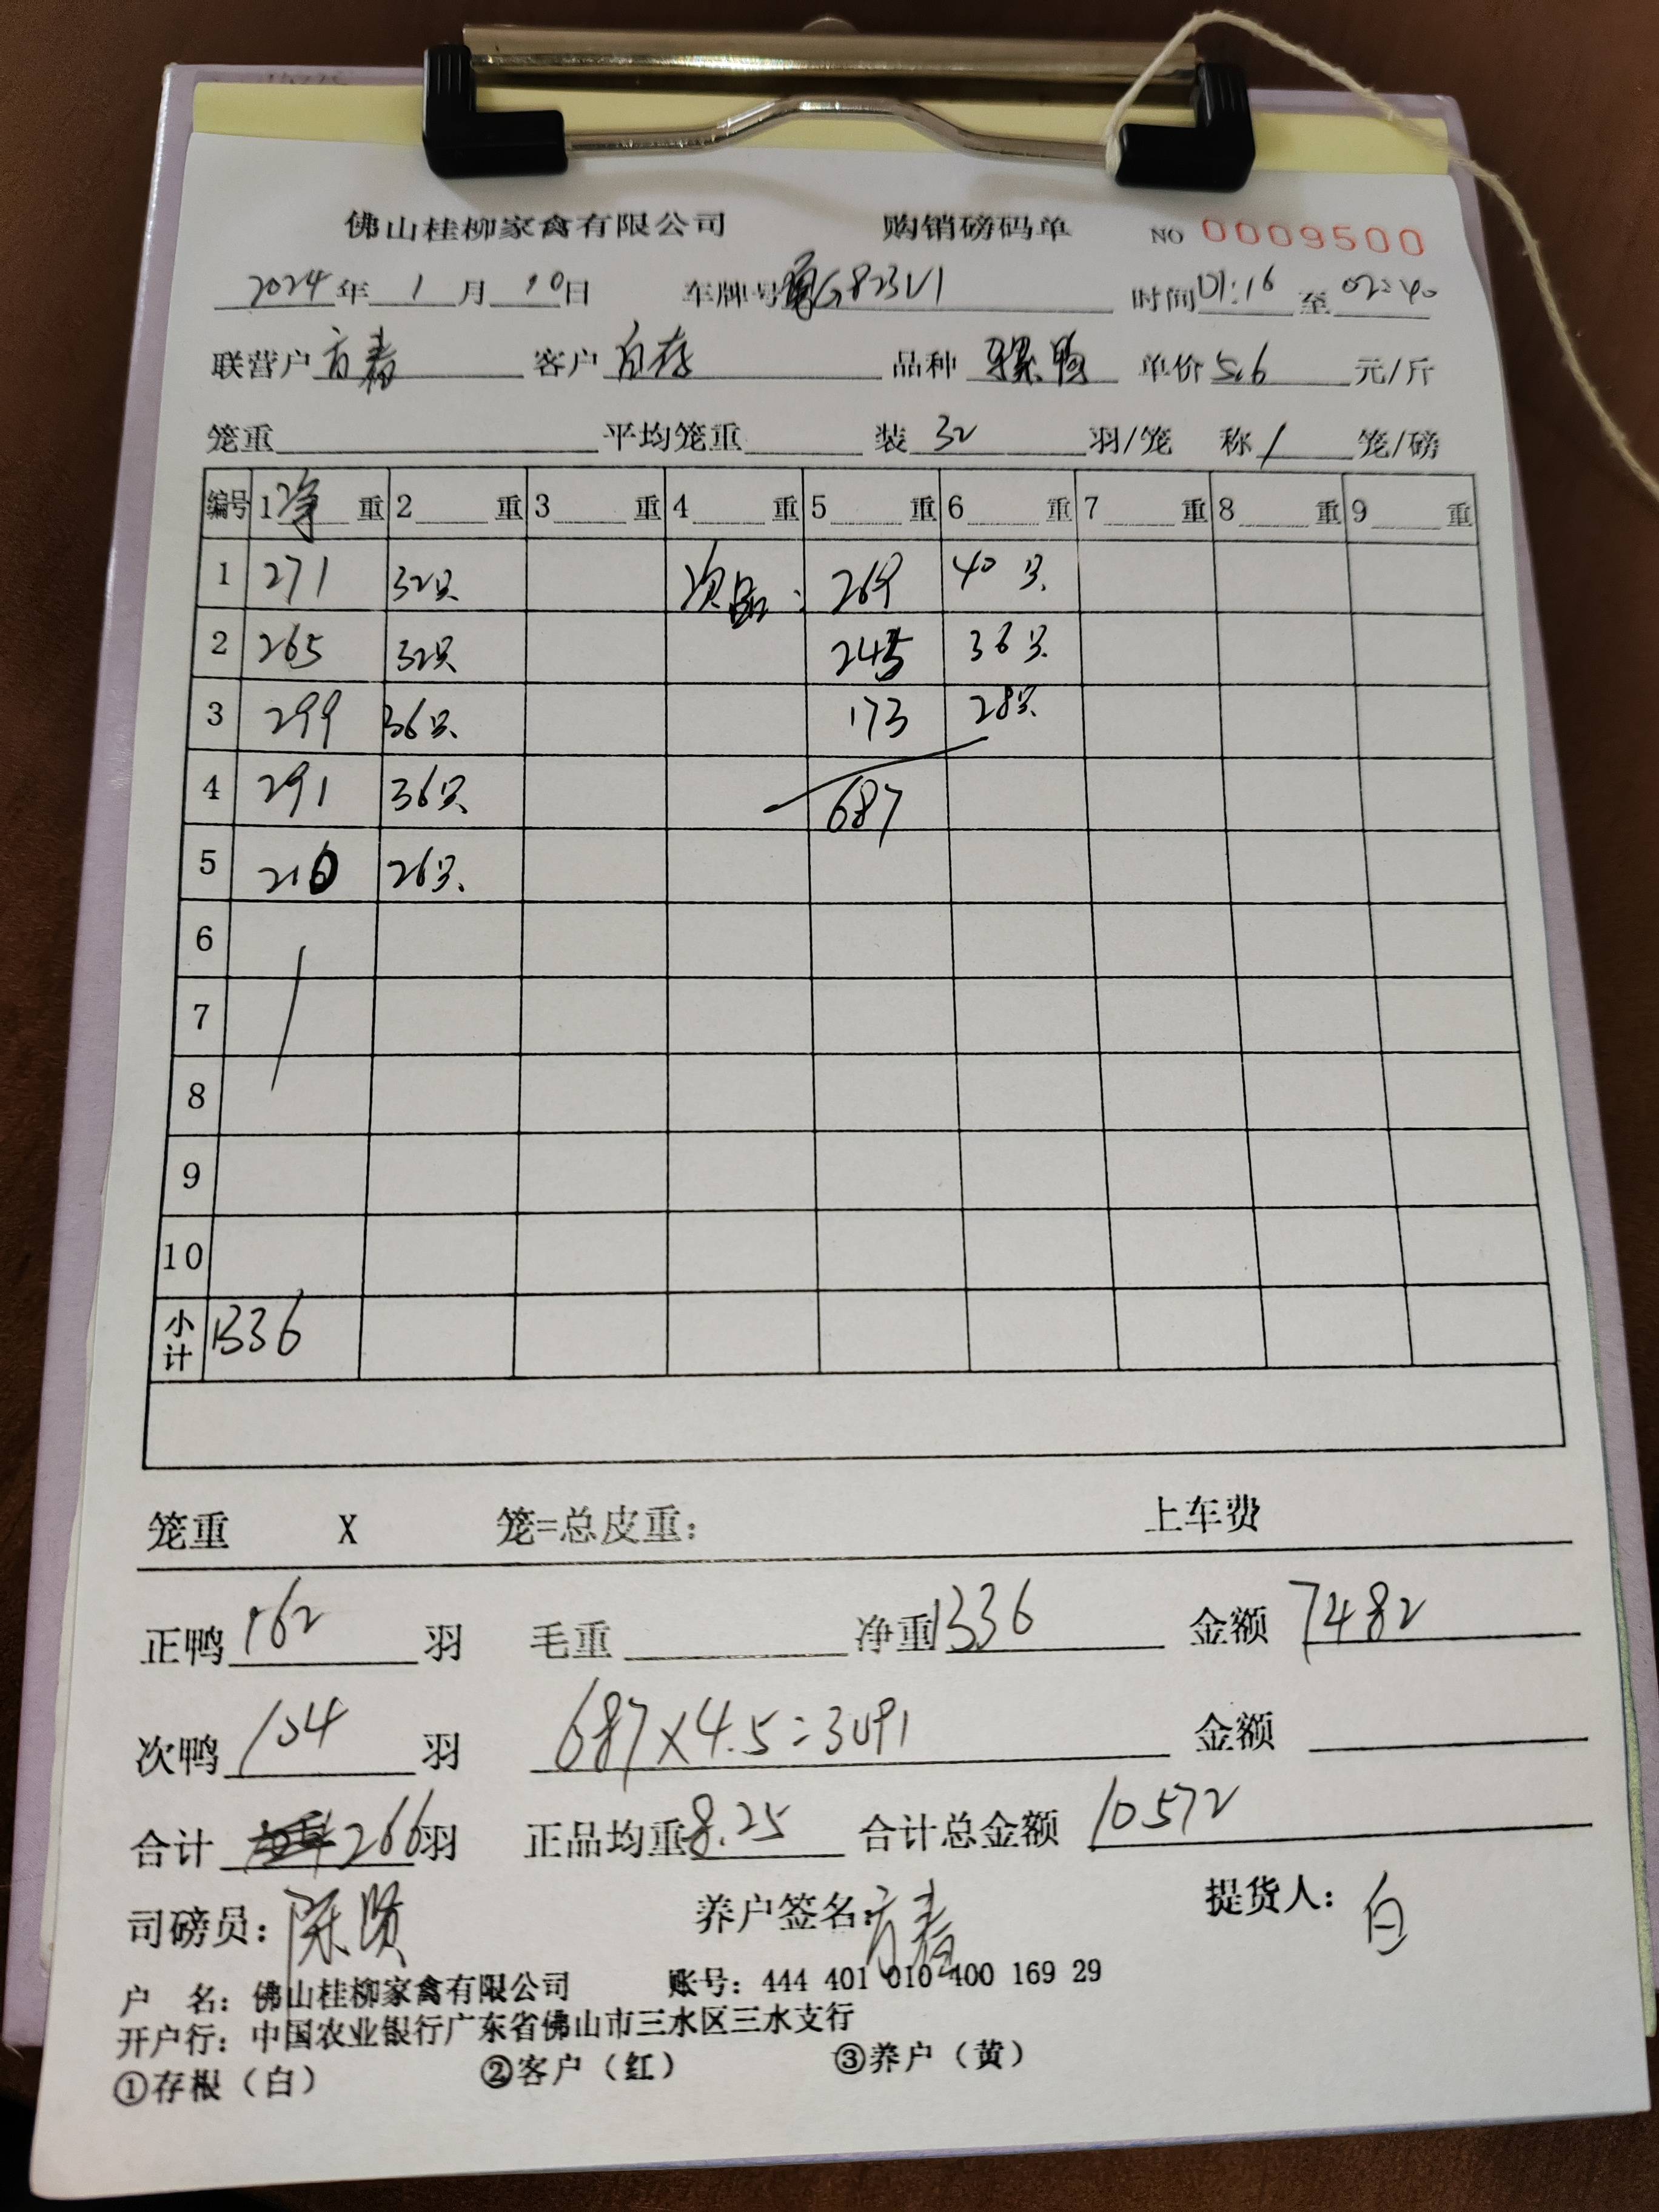 佛山桂柳家禽有限公司 购销磅码单 NO 0009500
2024年1月10日 车牌号G823V1 时间01:16至02:40
联营户方春 客户白存 品种骡鸭 单价5.6元/斤
笼重 平均笼重 装32羽/笼 称1笼/磅
编号 1净重 2重 3重 4重 5重 6重 7重 8重 9重
1 271 32只 次品: 269 40只
2 265 32只 245 36只
3 299 36只 173 28只
4 291 36只 687
5 210 26只
6
7
8
9
10
小计 1336
笼重 X 笼=总皮重: 上车费
正鸭162羽 毛重 净重1336 金额7482
次鸭104羽 687×4.5=3091 金额
合计266羽 正品均重8.25 合计总金额10572
司磅员:陈贤 养户签名:方春 提货人:白
户 名:佛山桂柳家禽有限公司 账号:444 401 010 400 169 29
开户行:中国农业银行广东省佛山市三水区三水支行
①存根(白) ②客户(红) ③养户(黄)